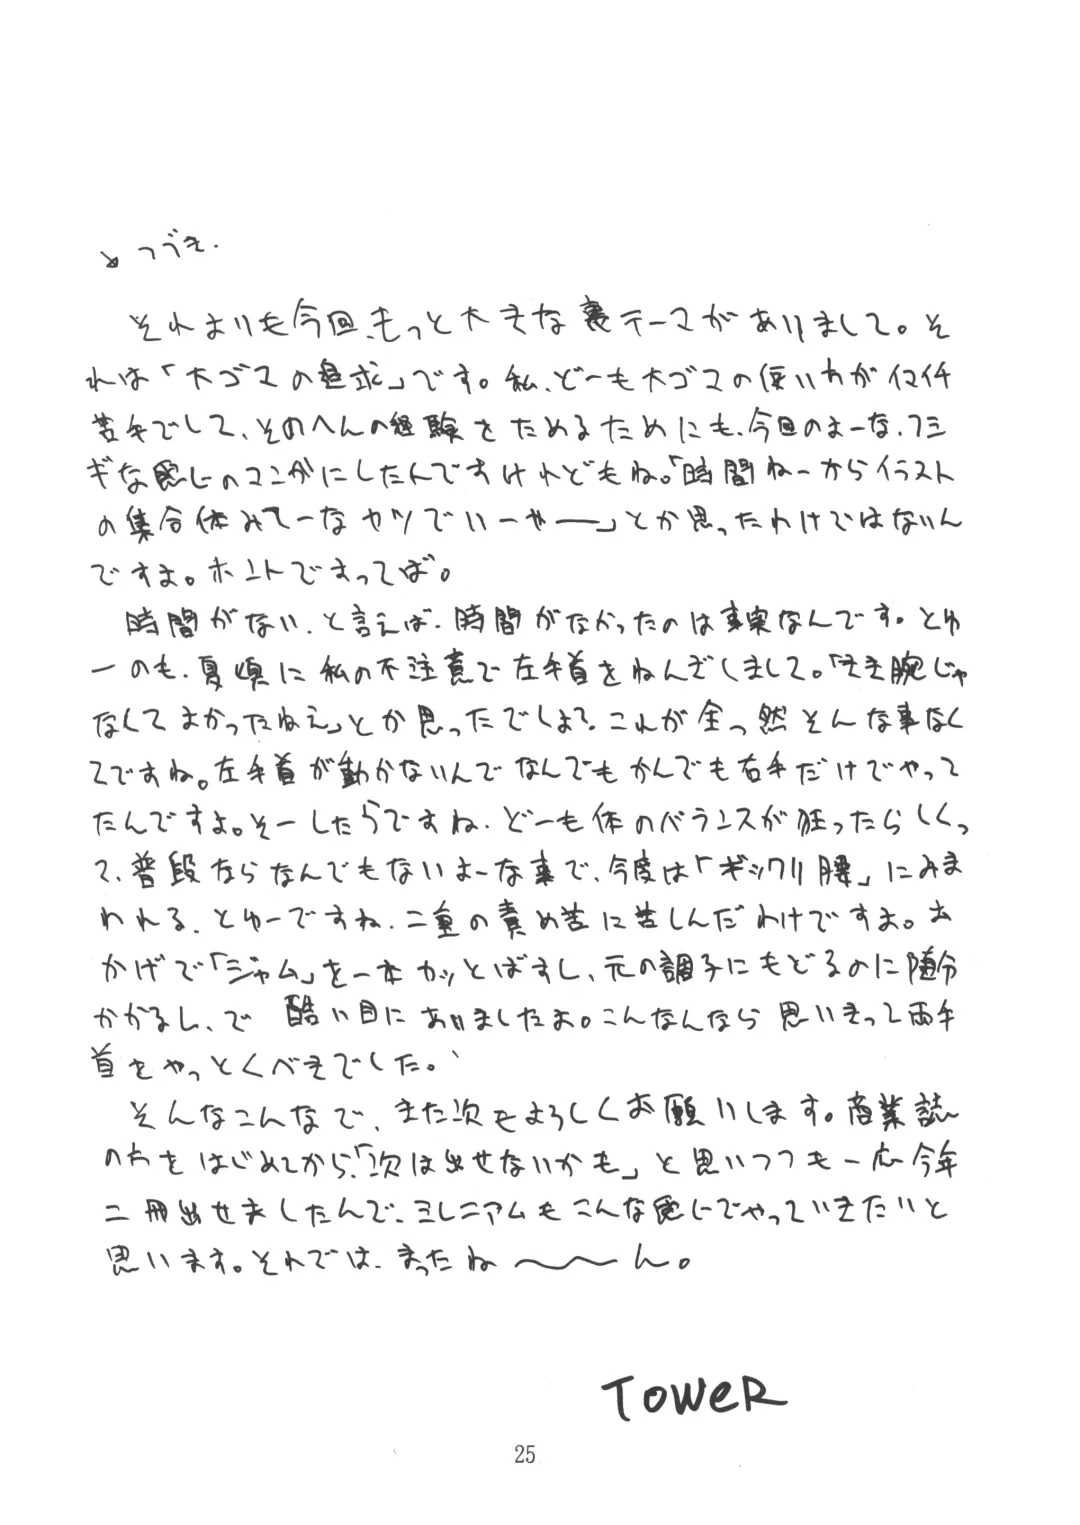 ↘つづき.
それよりも今回、もっと大きな裏テーマがありまして。そ
れは「大ゴマの追求」です。私、どーも大ゴマの使い方がイマイチ
苦手でして、そのへんの経験をためるためにも、今回のよーな、フシ
ギな感じのマンガにしたんですけれどもね。「時間ねーからイラスト
の集合体みてーなヤツでいーやー」とか思ったわけではないん
ですよ。ホントですってば。
時間がない、と言えば、時間がなかったのは事実なんです。とゆ
ーのも、夏頃に私の不注意で左手首をねんざしまして。「きき腕じゃ
なくてよかったねえ」とか思ったでしょ?これが全っ然そんな事なく
てですね。左手首が動かないんでなんでもかんでも右手だけでやって
たんですよ。そーしたらですね、どーも体のバランスが狂ったらしくっ
て、普段ならなんでもないよーな事で、今度は「ギックリ腰」にみま
われる、とゆーですね、二重の責め苦に苦しんだわけですよ。お
かげで「ジャム」を一本カッとばすし、元の調子にもどるのに随分
かかるし、で 酷い目にあいましたよ。こんなんなら思いきって両手
首をやっとくべきでした。
そんなこんなで、また次もよろしくお願いします。商業誌
の方をはじめてから、「次は出せないかも」と思いつつも一応今年
二冊出せましたんで、ミレニアムもこんな感じでやっていきたいと
思います。それでは、まったね〜〜ん。
TOWER
25